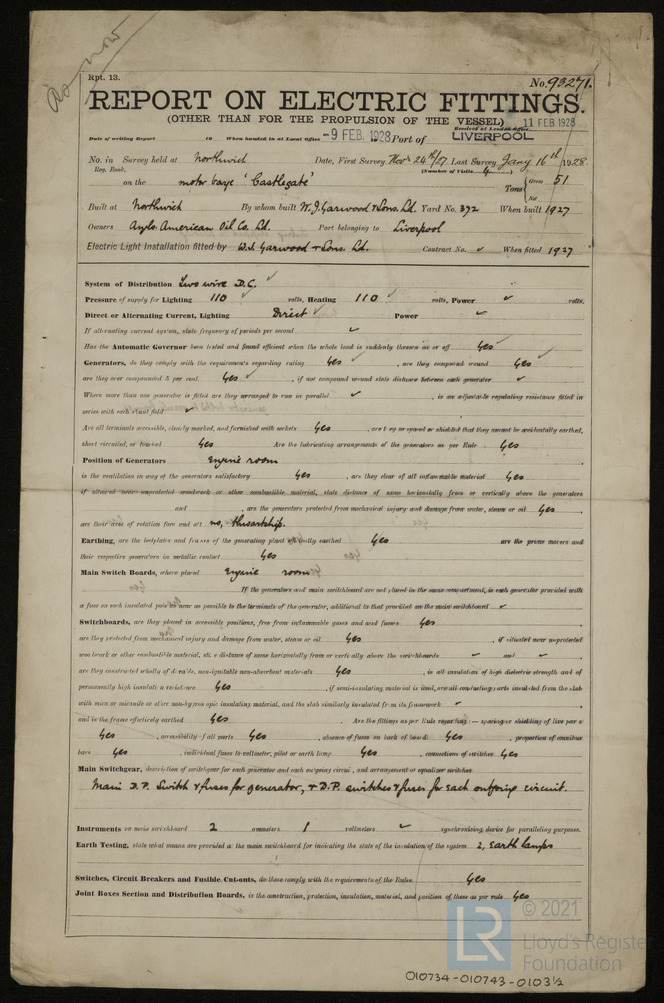 As now
Rpt. 13.
No. 93271.
REPORT ON ELECTRIC FITTINGS.
(OTHER THAN FOR THE PROPULSION OF THE VESSEL)
11 FEB 1928
Date of writing Report 19 When handed in at Local Office -9 FEB. 1928 Port of LIVERPOOL
Received at London Office
No. in Survey held at Northwich Date, First Survey Novr 26th/27 Last Survey Jany 16th 1928.
Reg. Book. (Number of Visits 4)
on the motor barge 'Castlegate' Tons { Gross 51
Net
Built at Northwich By whom built W.J. Garwood & Sons. Ld. Yard No. 392 When built 1927
Owners Anglo American Oil Co. Ld. Port belonging to Liverpool
Electric Light Installation fitted by W.J. Garwood & Sons. Ld. Contract No. ✓ When fitted 1927
System of Distribution Two wire D.C. ✓
Pressure of supply for Lighting 110 ✓ volts, Heating 110 ✓ volts, Power ✓ volts.
Direct or Alternating Current, Lighting Direct ✓ Power ✓
If alternating current system, state frequency of periods per second ✓
Has the Automatic Governor been tested and found efficient when the whole load is suddenly thrown on or off Yes ✓
Generators, do they comply with the requirements regarding rating Yes ✓, are they compound wound Yes ✓
are they over compounded 5 per cent. Yes ✓, if not compound wound state distance between each generator ✓
Where more than one generator is fitted are they arranged to run in parallel ✓, is an adjustable regulating resistance fitted in
series with each shunt field ✓
Are all terminals accessible, clearly marked, and furnished with sockets Yes, are they so spaced or shielded that they cannot be accidentally earthed,
short circuited, or touched Yes Are the lubricating arrangements of the generators as per Rule Yes
Position of Generators Engine room
is the ventilation in way of the generators satisfactory Yes, are they clear of all inflammable material Yes
if situated near unprotected woodwork or other combustible material, state distance of same horizontally from or vertically above the generators
and, are the generators protected from mechanical injury and damage from water, steam or oil Yes,
are their axes of rotation fore and aft no, thwartship.
Earthing, are the bedplates and frames of the generating plant efficiently earthed Yes are the prime movers and
their respective generators in metallic contact Yes
Main Switch Boards, where placed Engine room
If the generators and main switchboard are not placed in the same compartment, is each generator provided with
a fuse on each insulated pole as near as possible to the terminals of the generator, additional to that provided on the main switchboard ✓
Switchboards, are they placed in accessible positions, free from inflammable gases and acid fumes Yes
are they protected from mechanical injury and damage from water, steam or oil Yes, if situated near unprotected
woodwork or other combustible material, state distance of same horizontally from or vertically above the switchboards ✓ and ✓
are they constructed wholly of durable, non-ignitable non-absorbent materials Yes, is all insulation of high dielectric strength and of
permanently high insulation resistance Yes, if semi-insulating material is used, are all conducting parts insulated from the slab
with mica or micanite or other non-hygroscopic insulating material, and the slab similarly insulated from its framework ✓
and is the frame effectively earthed Yes. Are the fittings as per Rule regarding:— spacing or shielding of live parts
Yes, accessibility of all parts Yes, absence of fuses on back of board Yes, proportion of omnibus
bars Yes, individual fuses to voltmeter, pilot or earth lamp Yes, connections of switches Yes
Main Switchgear, description of switchgear for each generator and each outgoing circuit, and arrangement of equalizer switches
Main D.P. Switch & fuses for generator, & D.P. switches & fuses for each outgoing circuit.
Instruments on main switchboard 2 ammeters 1 voltmeters ✓ synchronising device for paralleling purposes.
Earth Testing, state what means are provided at the main switchboard for indicating the state of the insulation of the system 2, Earth lamps
Switches, Circuit Breakers and Fusible Cut-outs, do these comply with the requirements of the Rules Yes
Joint Boxes Section and Distribution Boards, is the construction, protection, insulation, material, and position of these as per rule Yes
LR
© 2021
Lloyd's Register
Foundation
010734-010743-0103½